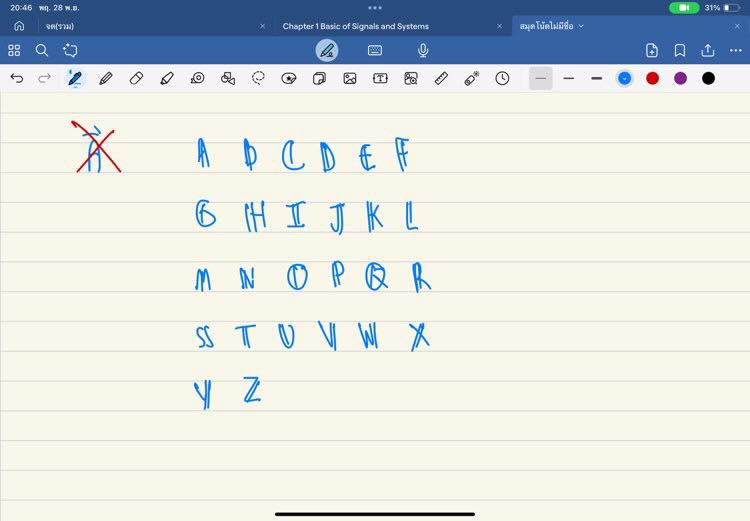 20:46 พฤ. 28 พ.ย.
31%
จด(รวม) Chapter 1 Basic of Signals and Systems สมุดโน้ตไม่มีชื่อ
A D C D E F
G H I J K L
M N O P Q R
S T U V W X
Y Z